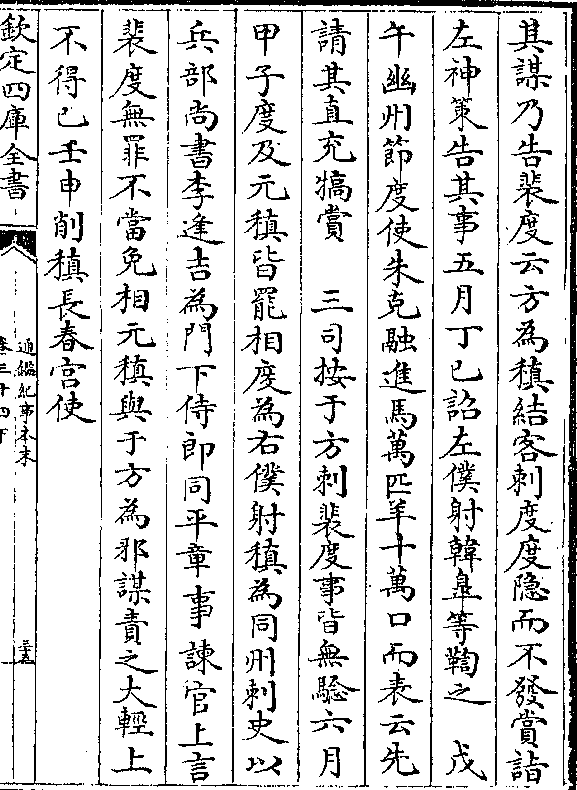 其謀乃告裴度云方為稹結客刺度度隐而不發賞詣
左神策告其事五月丁巳詔左僕射韓臯等鞫之　戊
午幽州節度使朱克融進馬萬匹羊十萬口而表云先
請其直充犒賞　三司按于方刺裴度事皆無驗六月
甲子度及元稹皆罷相度為右僕射稹為同州刺史以
兵部尚書李逢吉為門下侍郎同平章事諫官上言
裴度無罪不當免相元稹與于方為邪謀責之大輕上
不得已壬申削稹長春宮使
欽定四庫全書
通鑑紀事本末
卷三十四下
三十五